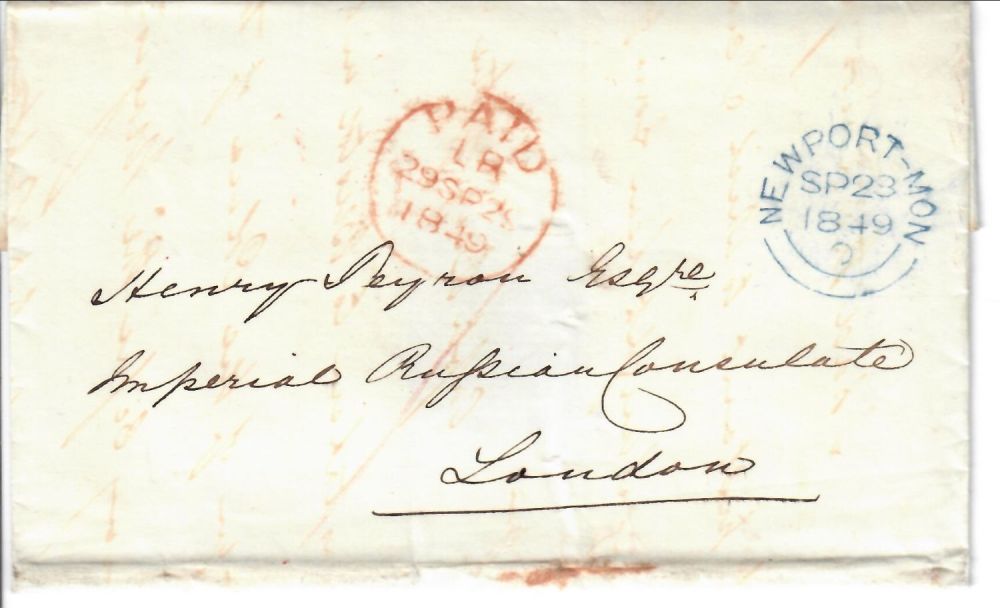 PAID
LR
29SP29
1849
NEWPORT-MON
SP28
1849
Henry Peyron Esqre
Imperial Russian Consulate
London